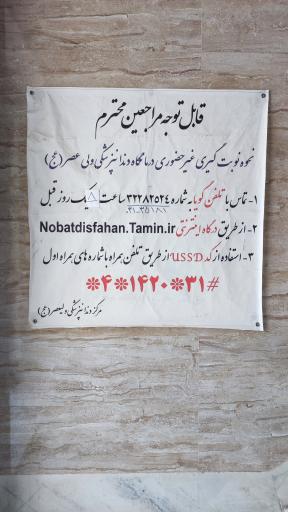 قابل توجه مراجعین محترم
نحوه نوبت گیری غیر حضوری درمانگاه دندانپزشکی ولی عصر (عج)
۱- تماس با تلفن گویا به شماره ۳۲۲۸۲۵۲۴ ساعت ۸ یک روز قبل
۳۱۰۳۵۱۸۱
۲- از طریق درگاه اینترنتی Nobatdisfahan.Tamin.ir
۳- استفاده از کد USSD از طریق تلفن همراه با شماره های همراه اول
*۴*۱۴۲۰*۳۱#
مرکز دندانپزشکی ولیعصر (عج)